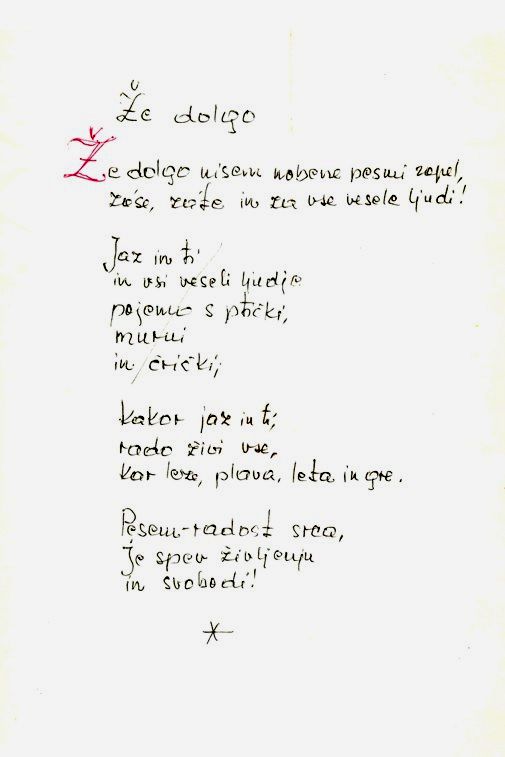 Že dolgo
Že dolgo nisem nobene pesmi zapel,
zase, zate in za vse vesele ljudi!
Jaz in ti
in vsi veseli ljudje
pojemo s ptički,
murni
in črički;
kakor jaz in ti,
rado živi vse,
kar leze, plava, leta in gre.
Pesem-radost srca,
je spev življenju
in svobodi!